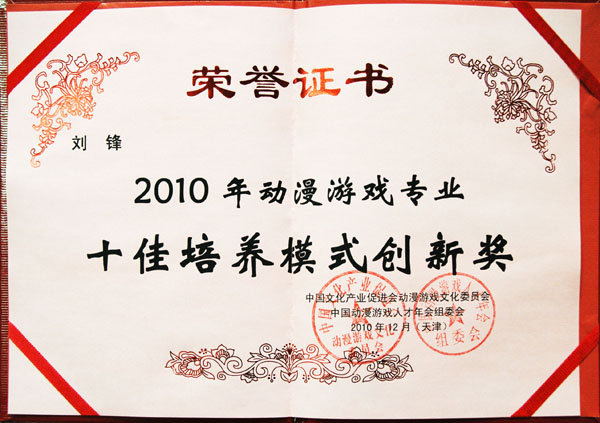 荣誉证书
刘 锋
2010 年动漫游戏专业
十佳培养模式创新奖
中国文化产业促进会动漫游戏文化委员会
中国动漫游戏人才年会组委会
2010 年 12 月（天津）
动漫游戏文化
委员会
组委会